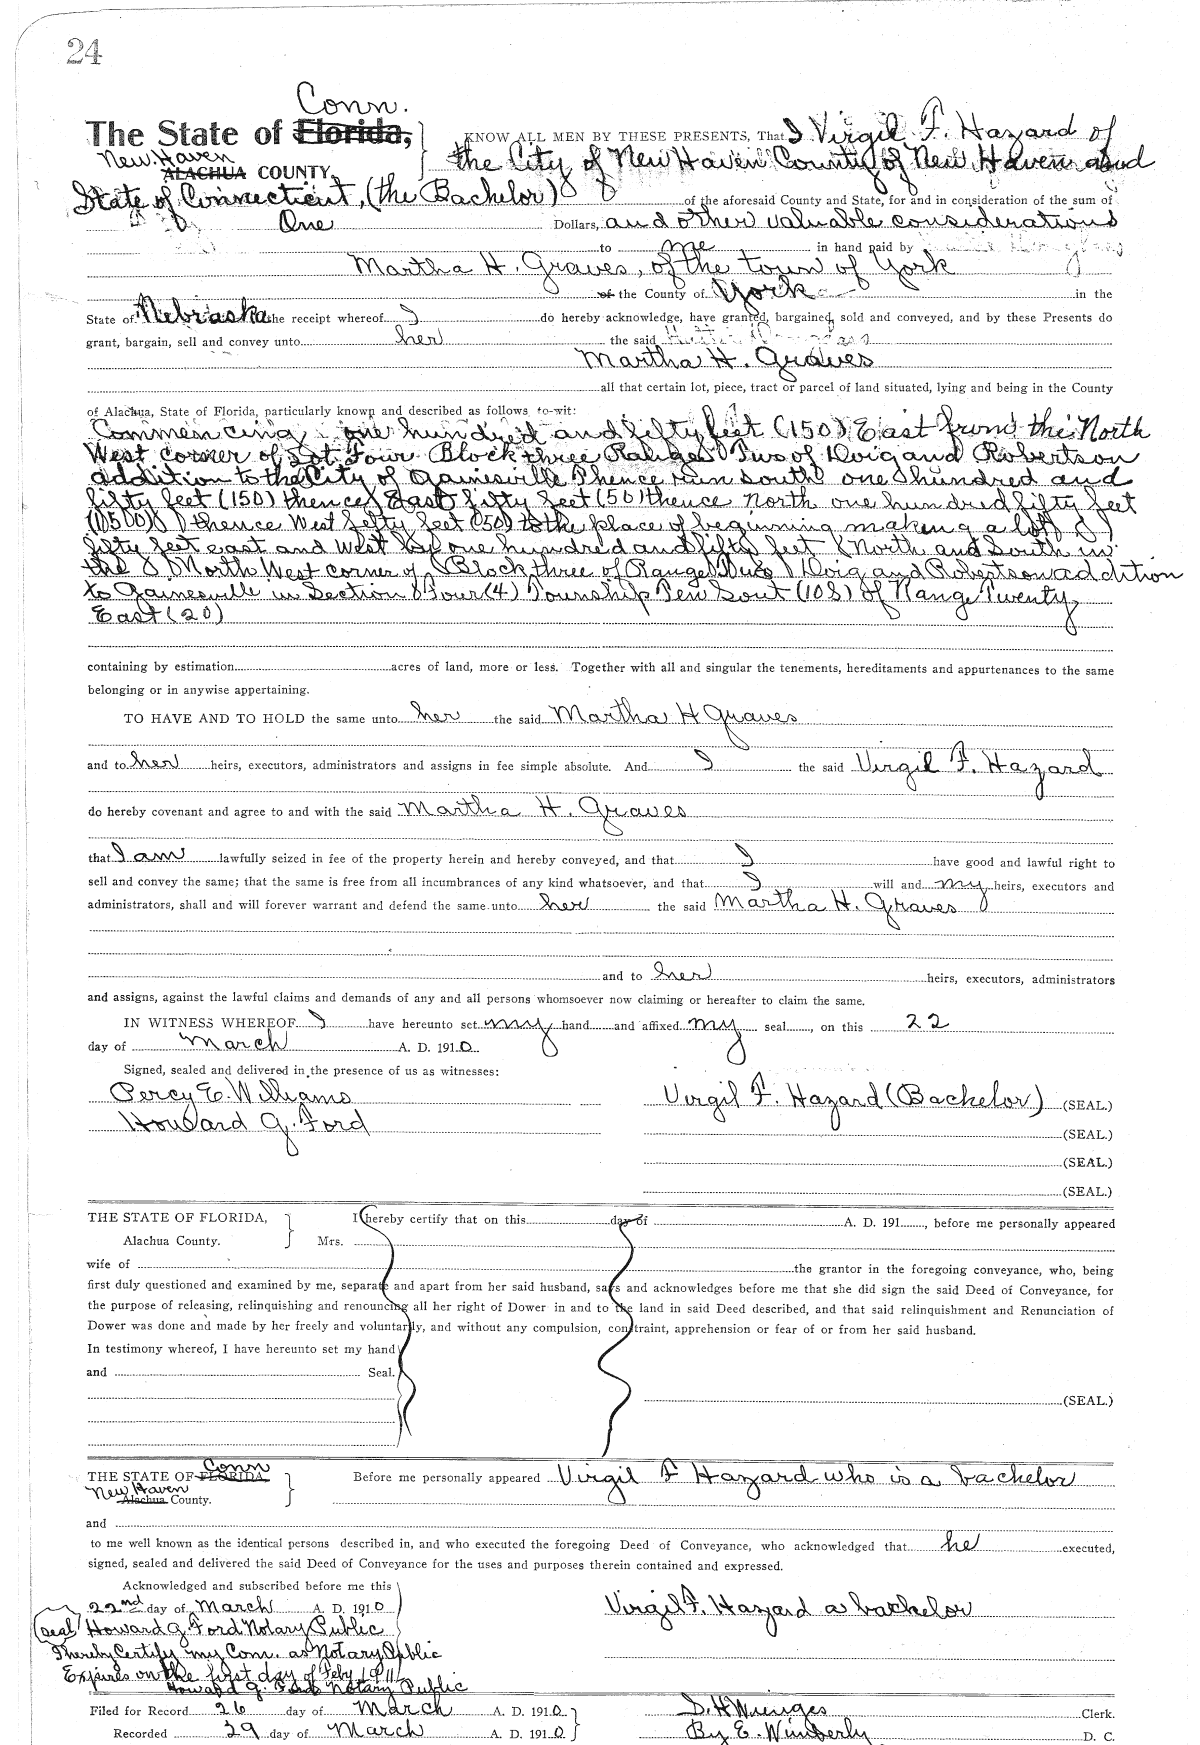 24
Conn.
The State of Florida,
KNOW ALL MEN BY THESE PRESENTS, That I Virgil F. Hazard of
New Haven
ALACHUA COUNTY,
the City of New Haven County of New Haven and
State of Connecticut, (the Bachelor) of the aforesaid County and State, for and in consideration of the sum of
One Dollars, and other valuable considerations
to me in hand paid by
Martha H. Graves, of the town of York
of the County of York in the
State of Nebraska the receipt whereof I do hereby acknowledge, have granted, bargained, sold and conveyed, and by these Presents do
grant, bargain, sell and convey unto her the said
Martha H. Graves
all that certain lot, piece, tract or parcel of land situated, lying and being in the County
of Alachua, State of Florida, particularly known and described as follows, to-wit:
Commencing one hundred and fifty feet (150) East from the North
West corner of Lot Four Block three Range Two of Doig and Robertson
addition to the City of Gainesville Thence run south one hundred and
fifty feet (150) thence East fifty feet (50) thence North one hundred fifty feet
thence West fifty feet (50) to the place of beginning making a lot
fifty feet east and West by one hundred and fifty feet North and South in
the North West corner of Block three of Range Two Doig and Robertson addition
to Gainesville in Section Four (4) Township Ten Sout (10S) of Range Twenty
East (20)
containing by estimation acres of land, more or less. Together with all and singular the tenements, hereditaments and appurtenances to the same
belonging or in anywise appertaining.
TO HAVE AND TO HOLD the same unto her the said Martha H Graves
and to her heirs, executors, administrators and assigns in fee simple absolute. And I the said Virgil F. Hazard
do hereby covenant and agree to and with the said Martha H. Graves
that I am lawfully seized in fee of the property herein and hereby conveyed, and that I have good and lawful right to
sell and convey the same; that the same is free from all incumbrances of any kind whatsoever, and that I will and my heirs, executors and
administrators, shall and will forever warrant and defend the same unto her the said Martha H. Graves
and to her heirs, executors, administrators
and assigns, against the lawful claims and demands of any and all persons whomsoever now claiming or hereafter to claim the same.
IN WITNESS WHEREOF I have hereunto set my hand and affixed my seal, on this 22
day of March A. D. 1910.
Signed, sealed and delivered in the presence of us as witnesses:
Percy E. Williams
Virgil F. Hazard (Bachelor) (SEAL.)
Howard G. Ford
(SEAL.)
(SEAL.)
(SEAL.)
THE STATE OF FLORIDA,
I hereby certify that on this day of A. D. 191, before me personally appeared
Alachua County.
Mrs.
wife of the grantor in the foregoing conveyance, who, being
first duly questioned and examined by me, separate and apart from her said husband, says and acknowledges before me that she did sign the said Deed of Conveyance, for
the purpose of releasing, relinquishing and renouncing all her right of Dower in and to the land in said Deed described, and that said relinquishment and Renunciation of
Dower was done and made by her freely and voluntarily, and without any compulsion, constraint, apprehension or fear of or from her said husband.
In testimony whereof, I have hereunto set my hand
and Seal.
(SEAL.)
Conn
THE STATE OF FLORIDA,
Before me personally appeared Virgil F Hazard who is a bachelor
New Haven
Alachua County.
and
to me well known as the identical persons described in, and who executed the foregoing Deed of Conveyance, who acknowledged that he executed,
signed, sealed and delivered the said Deed of Conveyance for the uses and purposes therein contained and expressed.
Acknowledged and subscribed before me this
22nd day of March A. D. 1910
Virgil F. Hazard a bachelor
(seal) Howard G. Ford Notary Public
I hereby Certify my Com. as Notary Public
Expires on the first day of Feby 1911
Howard G. Ford Notary Public
Filed for Record 26 day of March A. D. 1910.
S. H. Wienges Clerk.
Recorded 29 day of March A. D. 1910
By E. Wimberly D. C.